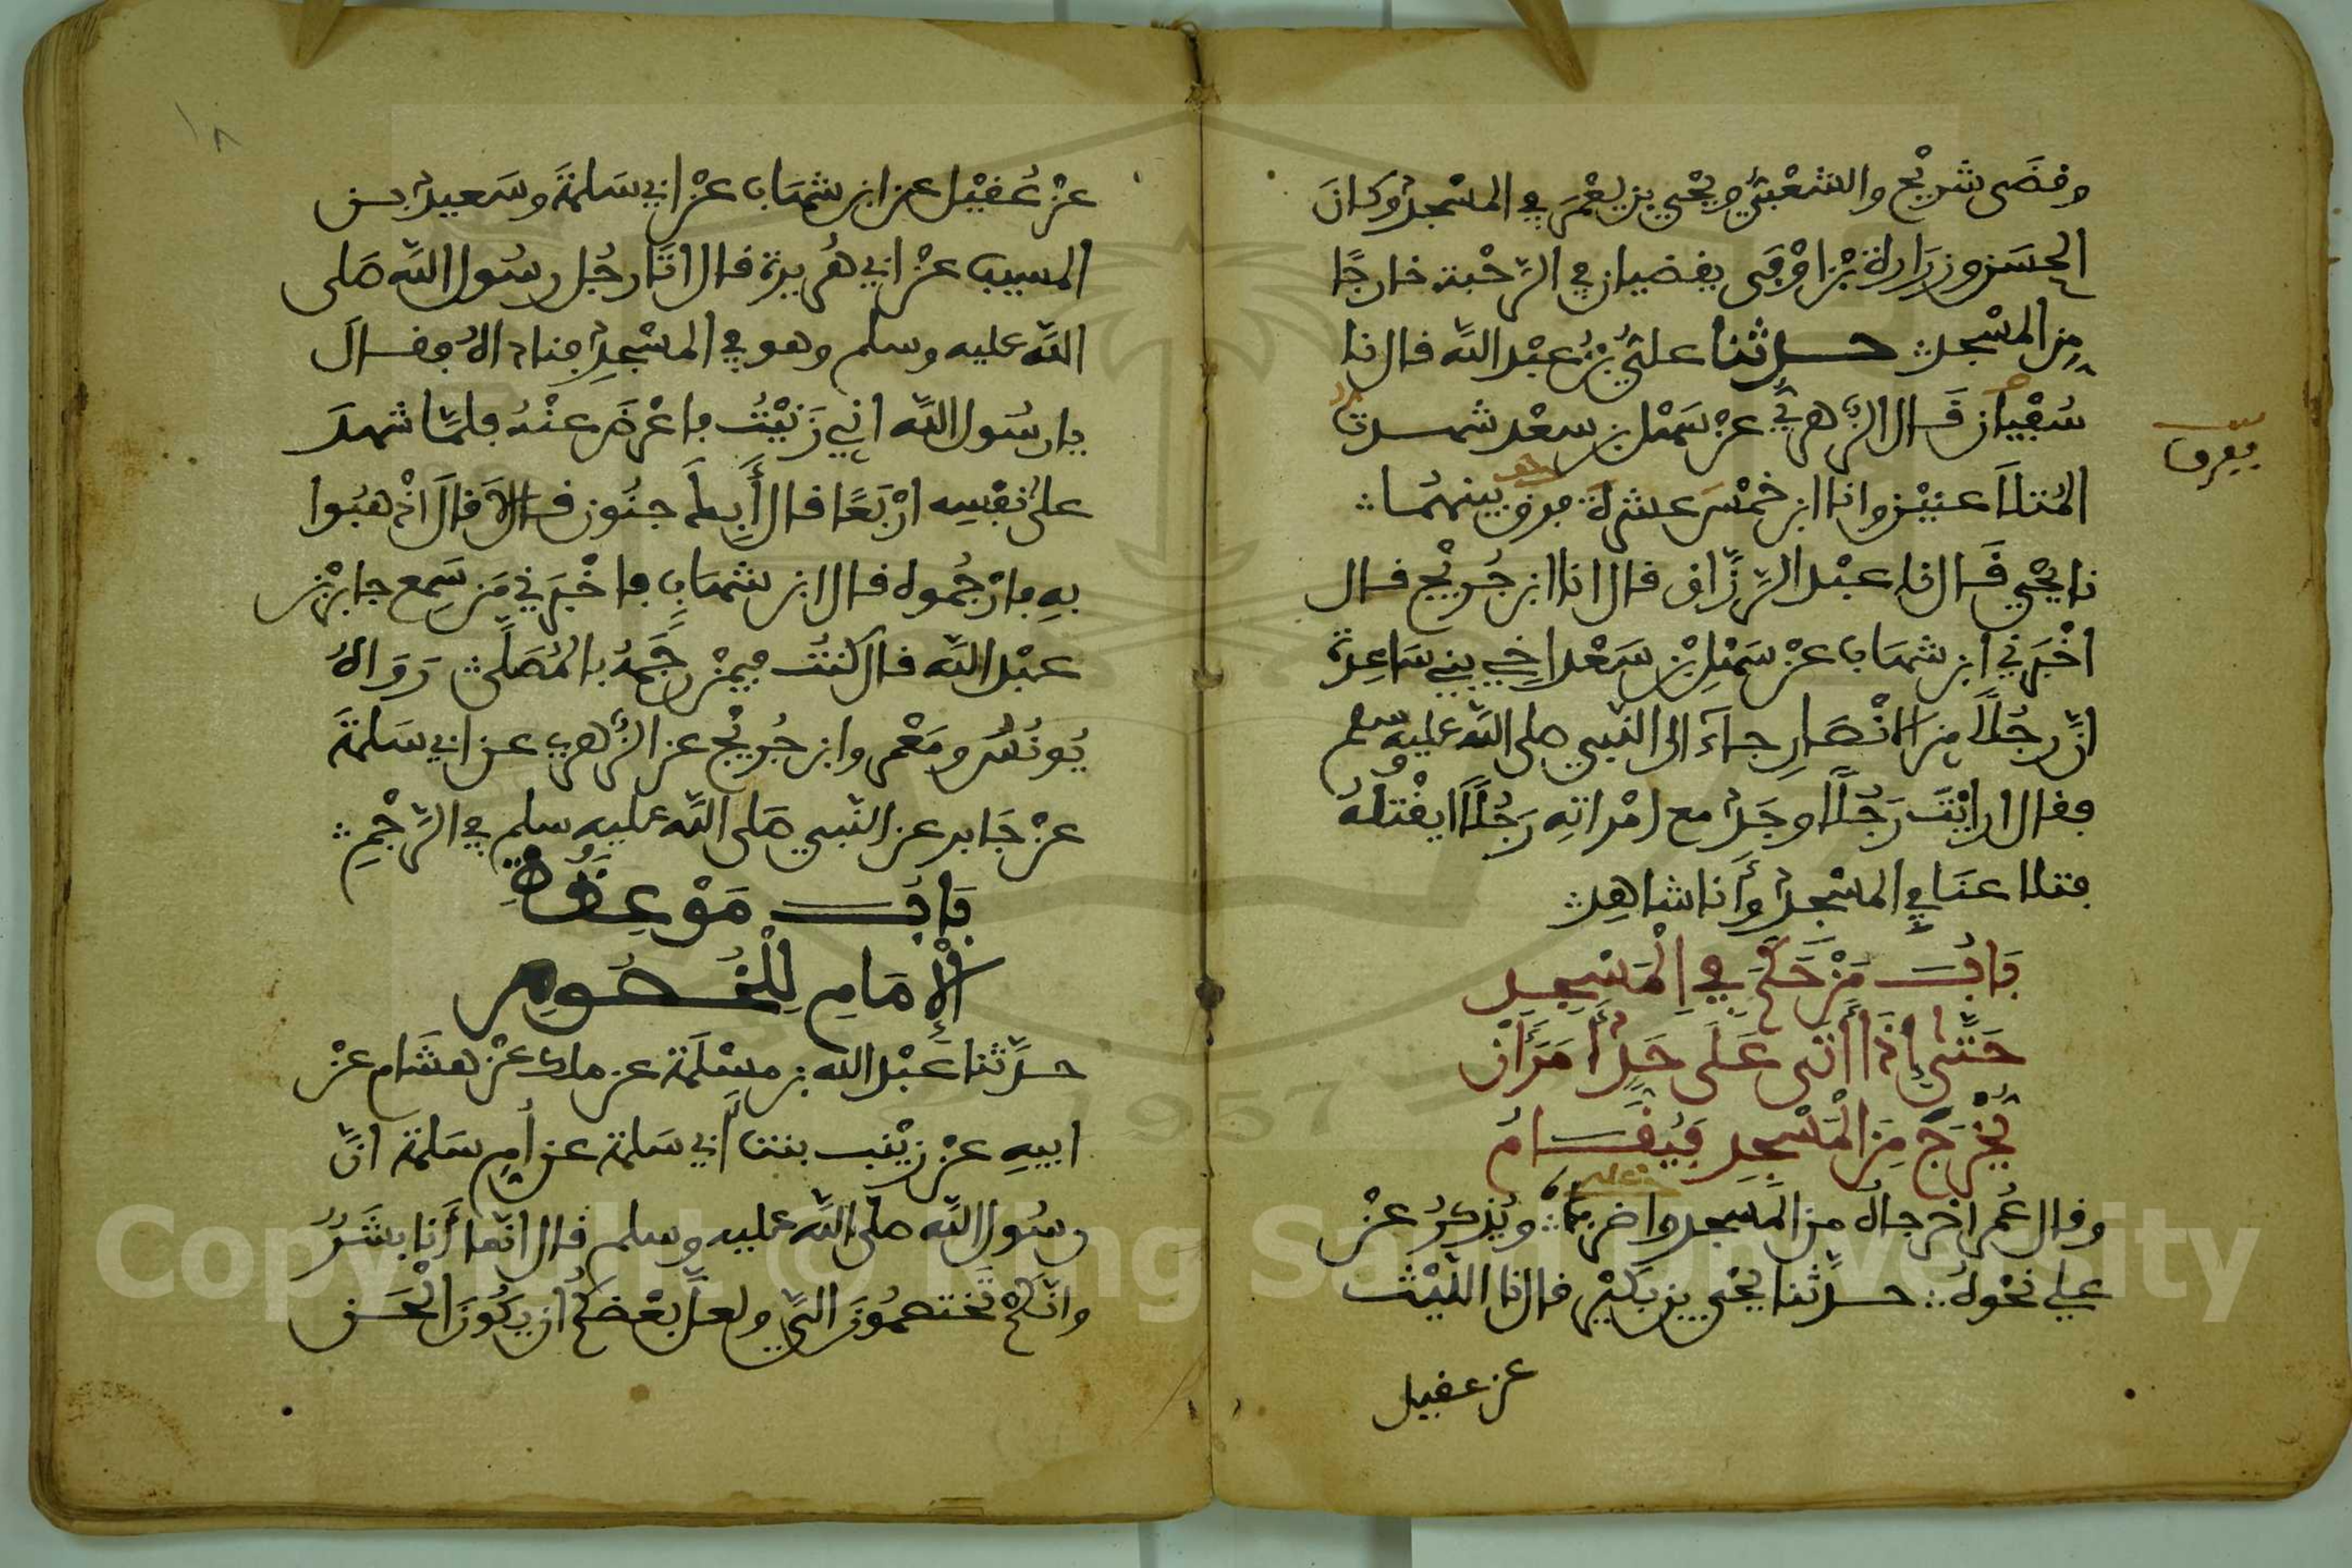 وقضى شريح والشعبي ويحيى بن يعمر في المسجد وكان
الحسن وزرارة بن اوفى يقضيان في الرحبة خارجًا
من المسجد حدثنا علي بن عبد الله قال نا
سفيان قال الزهري عن سهل بن سعد شهدت
المتلاعنين وانا ابن خمس عشرة فرق بينهما
نا يحيى قال نا عبد الرزاق قال انا ابن جريج قال
اخبرني ابن شهاب عن سهل بن سعد اخي بني ساعدة
ان رجلا من الانصار جاء الى النبي صلى الله عليه وسلم
فقال ارايت رجلا وجد مع امراته رجلا ايقتله
فتلاعنا في المسجد وأنا شاهد
باب من حكم في المسجد
حتى إذا أتى على حد أمر أن
يخرج من المسجد فيقام
وقال عمر اخرجاه من المسجد واضرباه ويذكر عن
علي نحوه حدثنا يحيى بن بكير قال نا الليث
عن عقيل
يفرق
عن عقيل عن ابن شهاب عن ابي سلمة وسعيد بن
المسيب عن ابي هريرة قال اتا رجل رسول الله صلى
الله عليه وسلم وهو في المسجد فناداه فقال
يا رسول الله اني زنيت فاعرض عنه فلما شهد
على نفسه اربعًا قال أبك جنون قال لا قال اذهبوا
به فارجموه قال ابن شهاب فاخبرني من سمع جابر بن
عبد الله قال كنت فيمن رجمه بالمصلى رواه
يونس ومعمر وابن جريج عن الزهري عن ابي سلمة
عن جابر عن النبي صلى الله عليه سلم في الرجم
باب موعظة
الإمام للخصوم
حدثنا عبد الله بن مسلمة عن مالك عن هشام عن
ابيه عن زينب بنت أبي سلمة عن أم سلمة ان
رسول الله صلى الله عليه وسلم قال انما أنا بشر
وانكم تختصمون الي ولعل بعضكم أن يكون الحن
١٨
Copyright © King Saud University
1957